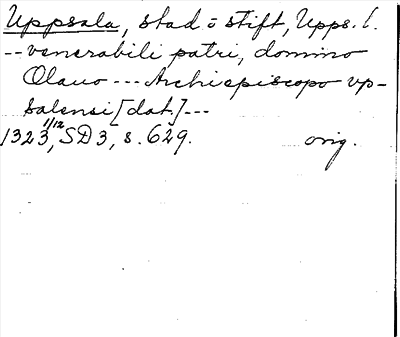 Uppsala, stad o stift, Upps. l.
-- venerabili patri, domino
Olauo --- Archiepiscopo vp-
salensi [dat.] ---
1323 1/12, SD3, s. 629. orig.